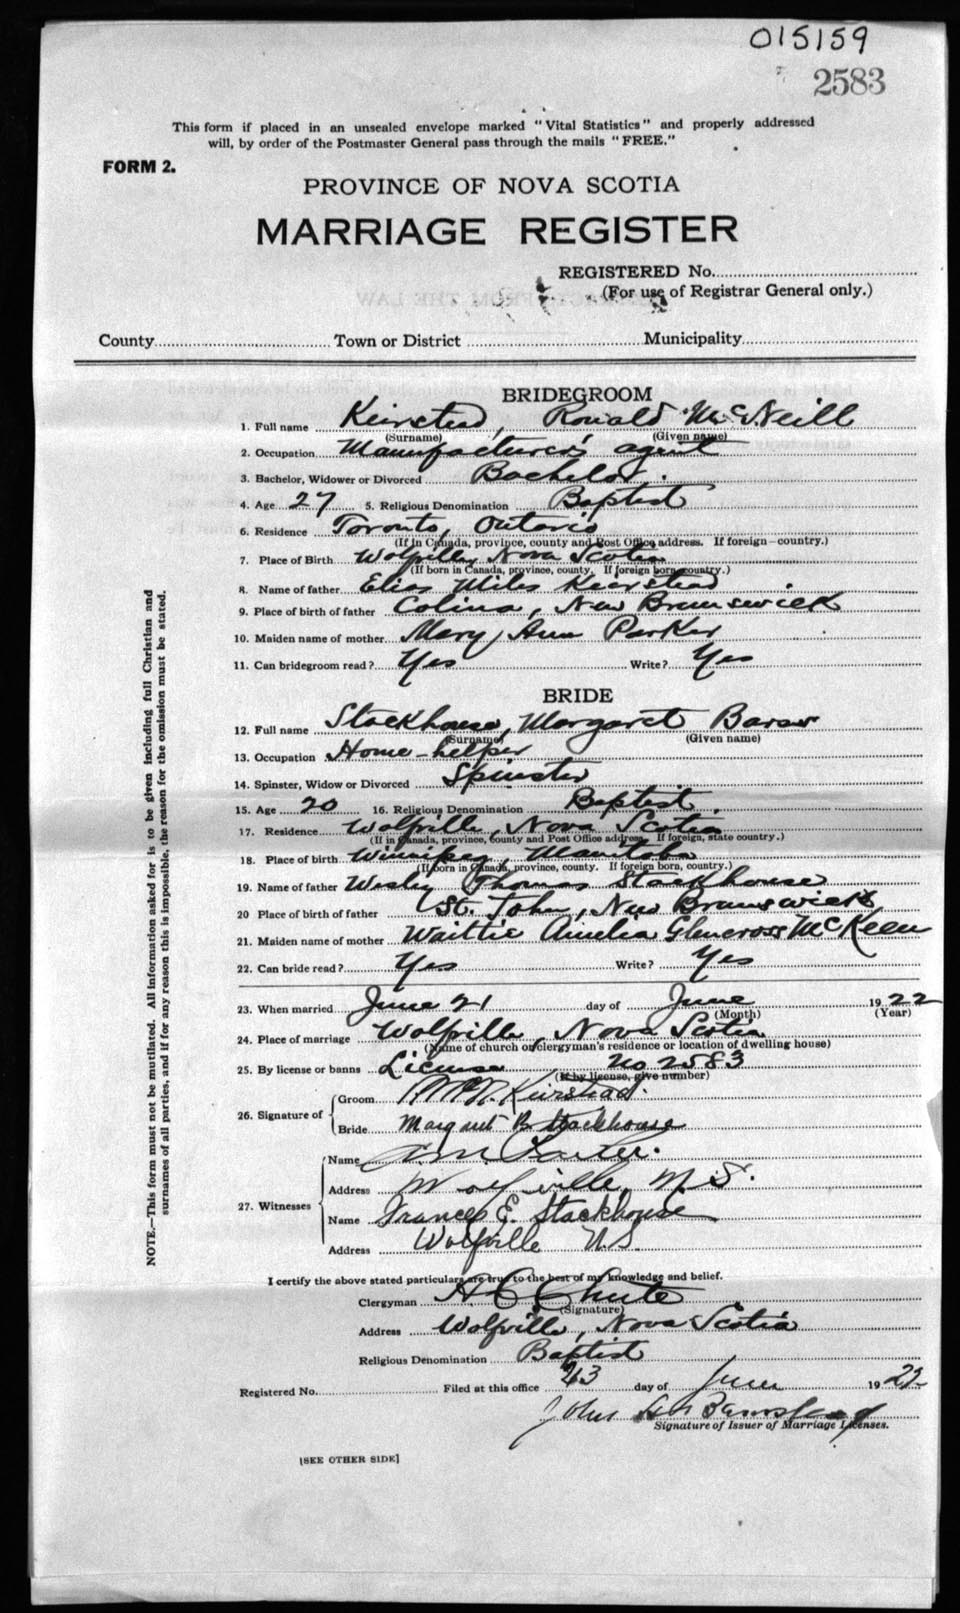 015159
2583
This form if placed in an unsealed envelope marked "Vital Statistics" and properly addressed
will, by order of the Postmaster General pass through the mails "FREE."
FORM 2.
PROVINCE OF NOVA SCOTIA
MARRIAGE REGISTER
REGISTERED No.
(For use of Registrar General only.)
County Town or District Municipality
BRIDEGROOM
1. Full name Keirstead, Ronald McNeill
(Surname) (Given name)
2. Occupation Manufacturer's agent
3. Bachelor, Widower or Divorced Bachelor.
4. Age 27 5. Religious Denomination Baptist
6. Residence Toronto, Ontario
(If in Canada, province, county and Post Office address. If foreign—country.)
7. Place of Birth Wolfville, Nova Scotia
(If born in Canada, province, county. If foreign born country.)
8. Name of father Elias Miles Keirstead
9. Place of birth of father Colina, New Brunswick
10. Maiden name of mother Mary Ann Parker
11. Can bridegroom read? Yes Write? Yes
BRIDE
12. Full name Stackhouse, Margaret Barss
(Surname) (Given name)
13. Occupation Home-helper
14. Spinster, Widow or Divorced Spinster
15. Age 20 16. Religious Denomination Baptist.
17. Residence Wolfville, Nova Scotia
(If in Canada, province, county and Post Office address. If foreign, state country.)
18. Place of birth Winnipeg, Manitoba
(If born in Canada, province, county. If foreign born, country.)
19. Name of father Wesley Thomas Stackhouse
20 Place of birth of father St. John, New Brunswick
21. Maiden name of mother Waittie Amelia Glencross McKeen
22. Can bride read? Yes Write? Yes
23. When married June 21 day of June 1922
(Month) (Year)
24. Place of marriage Wolfville, Nova Scotia
(Name of church or clergyman's residence or location of dwelling house)
25. By license or banns License No 2583
(If by license, give number)
26. Signature of Groom R McN. Keirstead.
Bride Margaret B. Stackhouse
27. Witnesses Name
Address Wolfville, N.S.
Name Frances E. Stackhouse
Address Wolfville N.S.
I certify the above stated particulars are true to the best of my knowledge and belief.
Clergyman A C Chute
(Signature)
Address Wolfville, Nova Scotia
Religious Denomination Baptist
Registered No. Filed at this office 23 day of June 1922
John
Signature of Issuer of Marriage Licenses.
[SEE OTHER SIDE]
NOTE.—This form must not be mutilated. All information asked for is to be given including full Christian and
surnames of all parties, and if for any reason this is impossible, the reason for the omission must be stated.